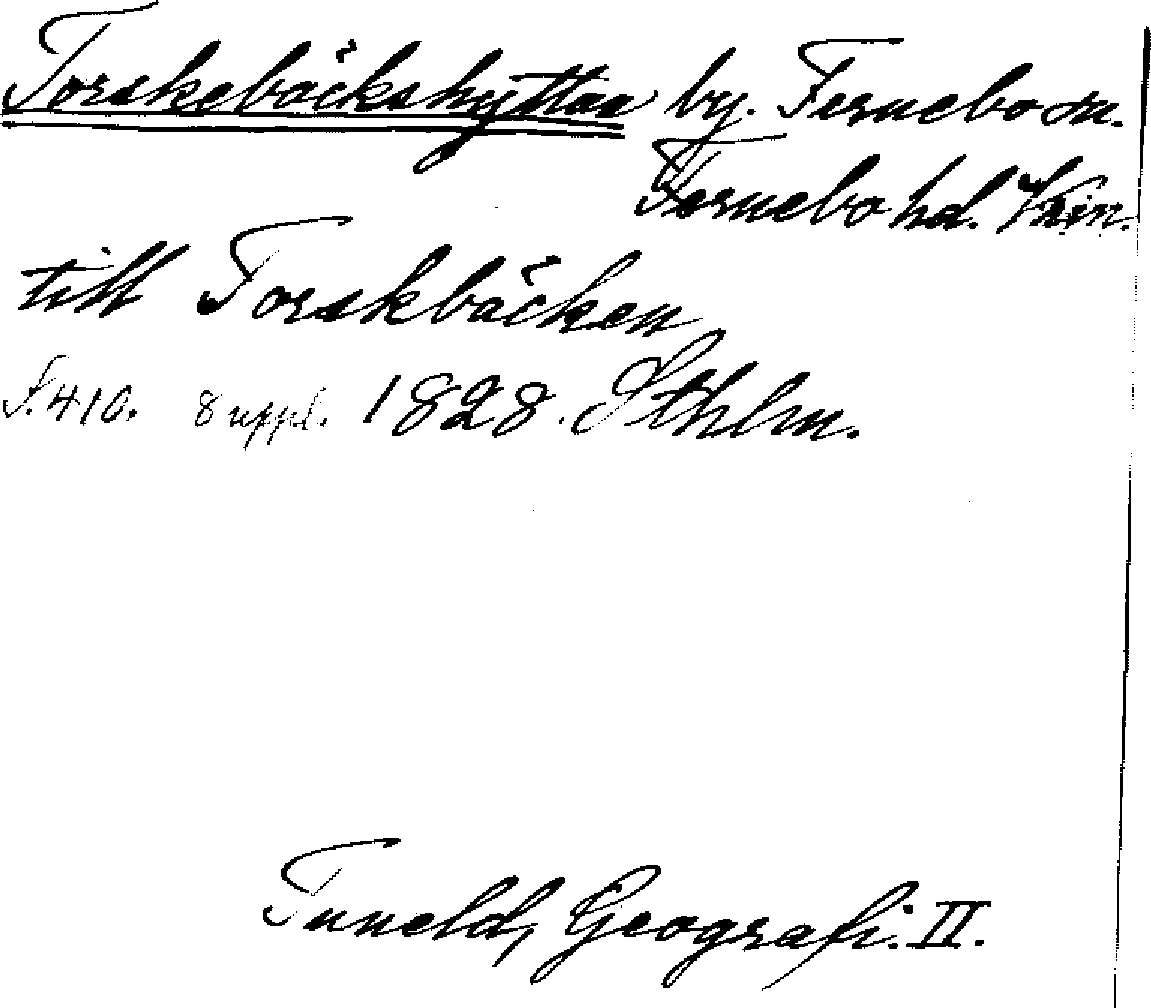 Torskebäckshyttan by. Fernebo sn.
Fernebo hd.
till Torskbäcken
S. 410. 8 uppl. 1828. Sthlm.
Tuneld, Geografi. II.